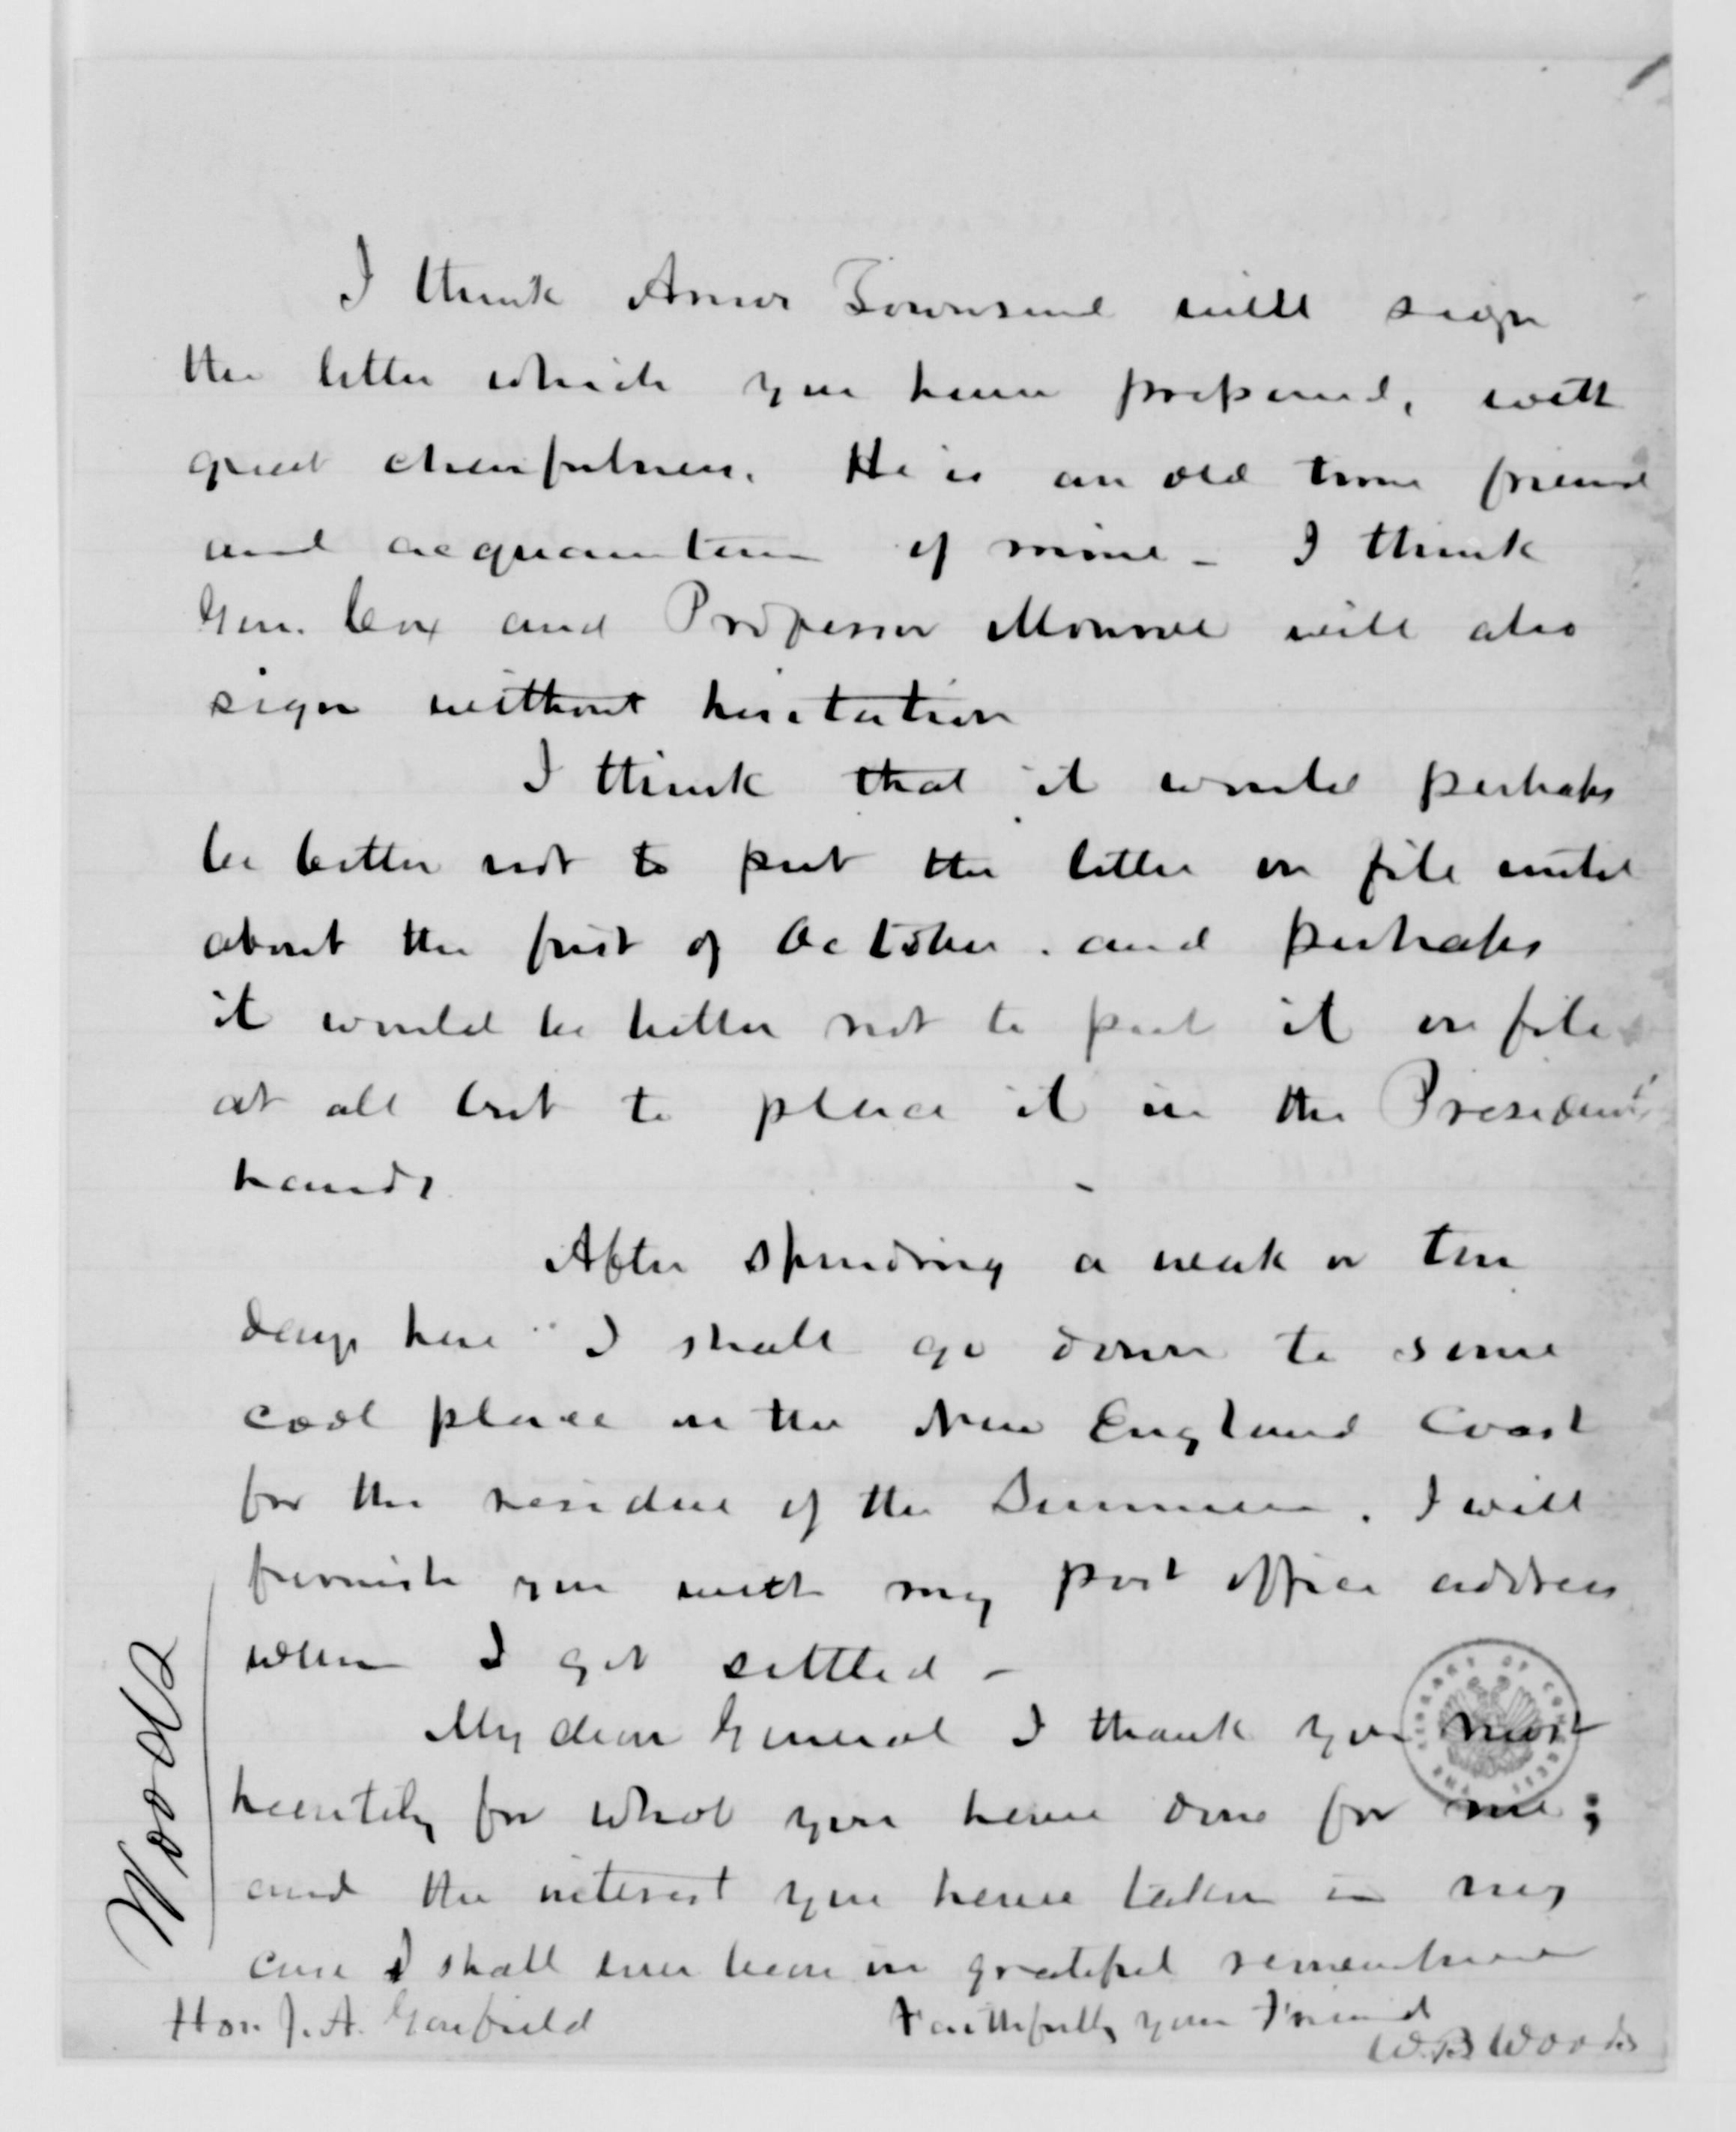 I think Amos Townsend will sign
the letter which you have prepared, with
great cheerfulness. He is an old time friend
and acquaintance of mine - I think
Gen. Cox and Professor Monroe will also
sign without hesitation
I think that it would perhaps
be better not to put the letter on file until
about the first of October. and perhaps
it would be better not to put it on file
at all but to place it in the President's
hands
After spending a week or ten
days here I shall go down to some
cool place on the New England Coast
for the residue of the Summer. I will
furnish you with my post office address
when I get settled -
My dear General I thank you most
heartily for what you have done for me;
and the interest you have taken in my
case I shall ever bear in grateful remembrance
Hon. J. A. Garfield
Faithfully your Friend
W. B Woods
Woods
LIBRARY OF CONGRESS